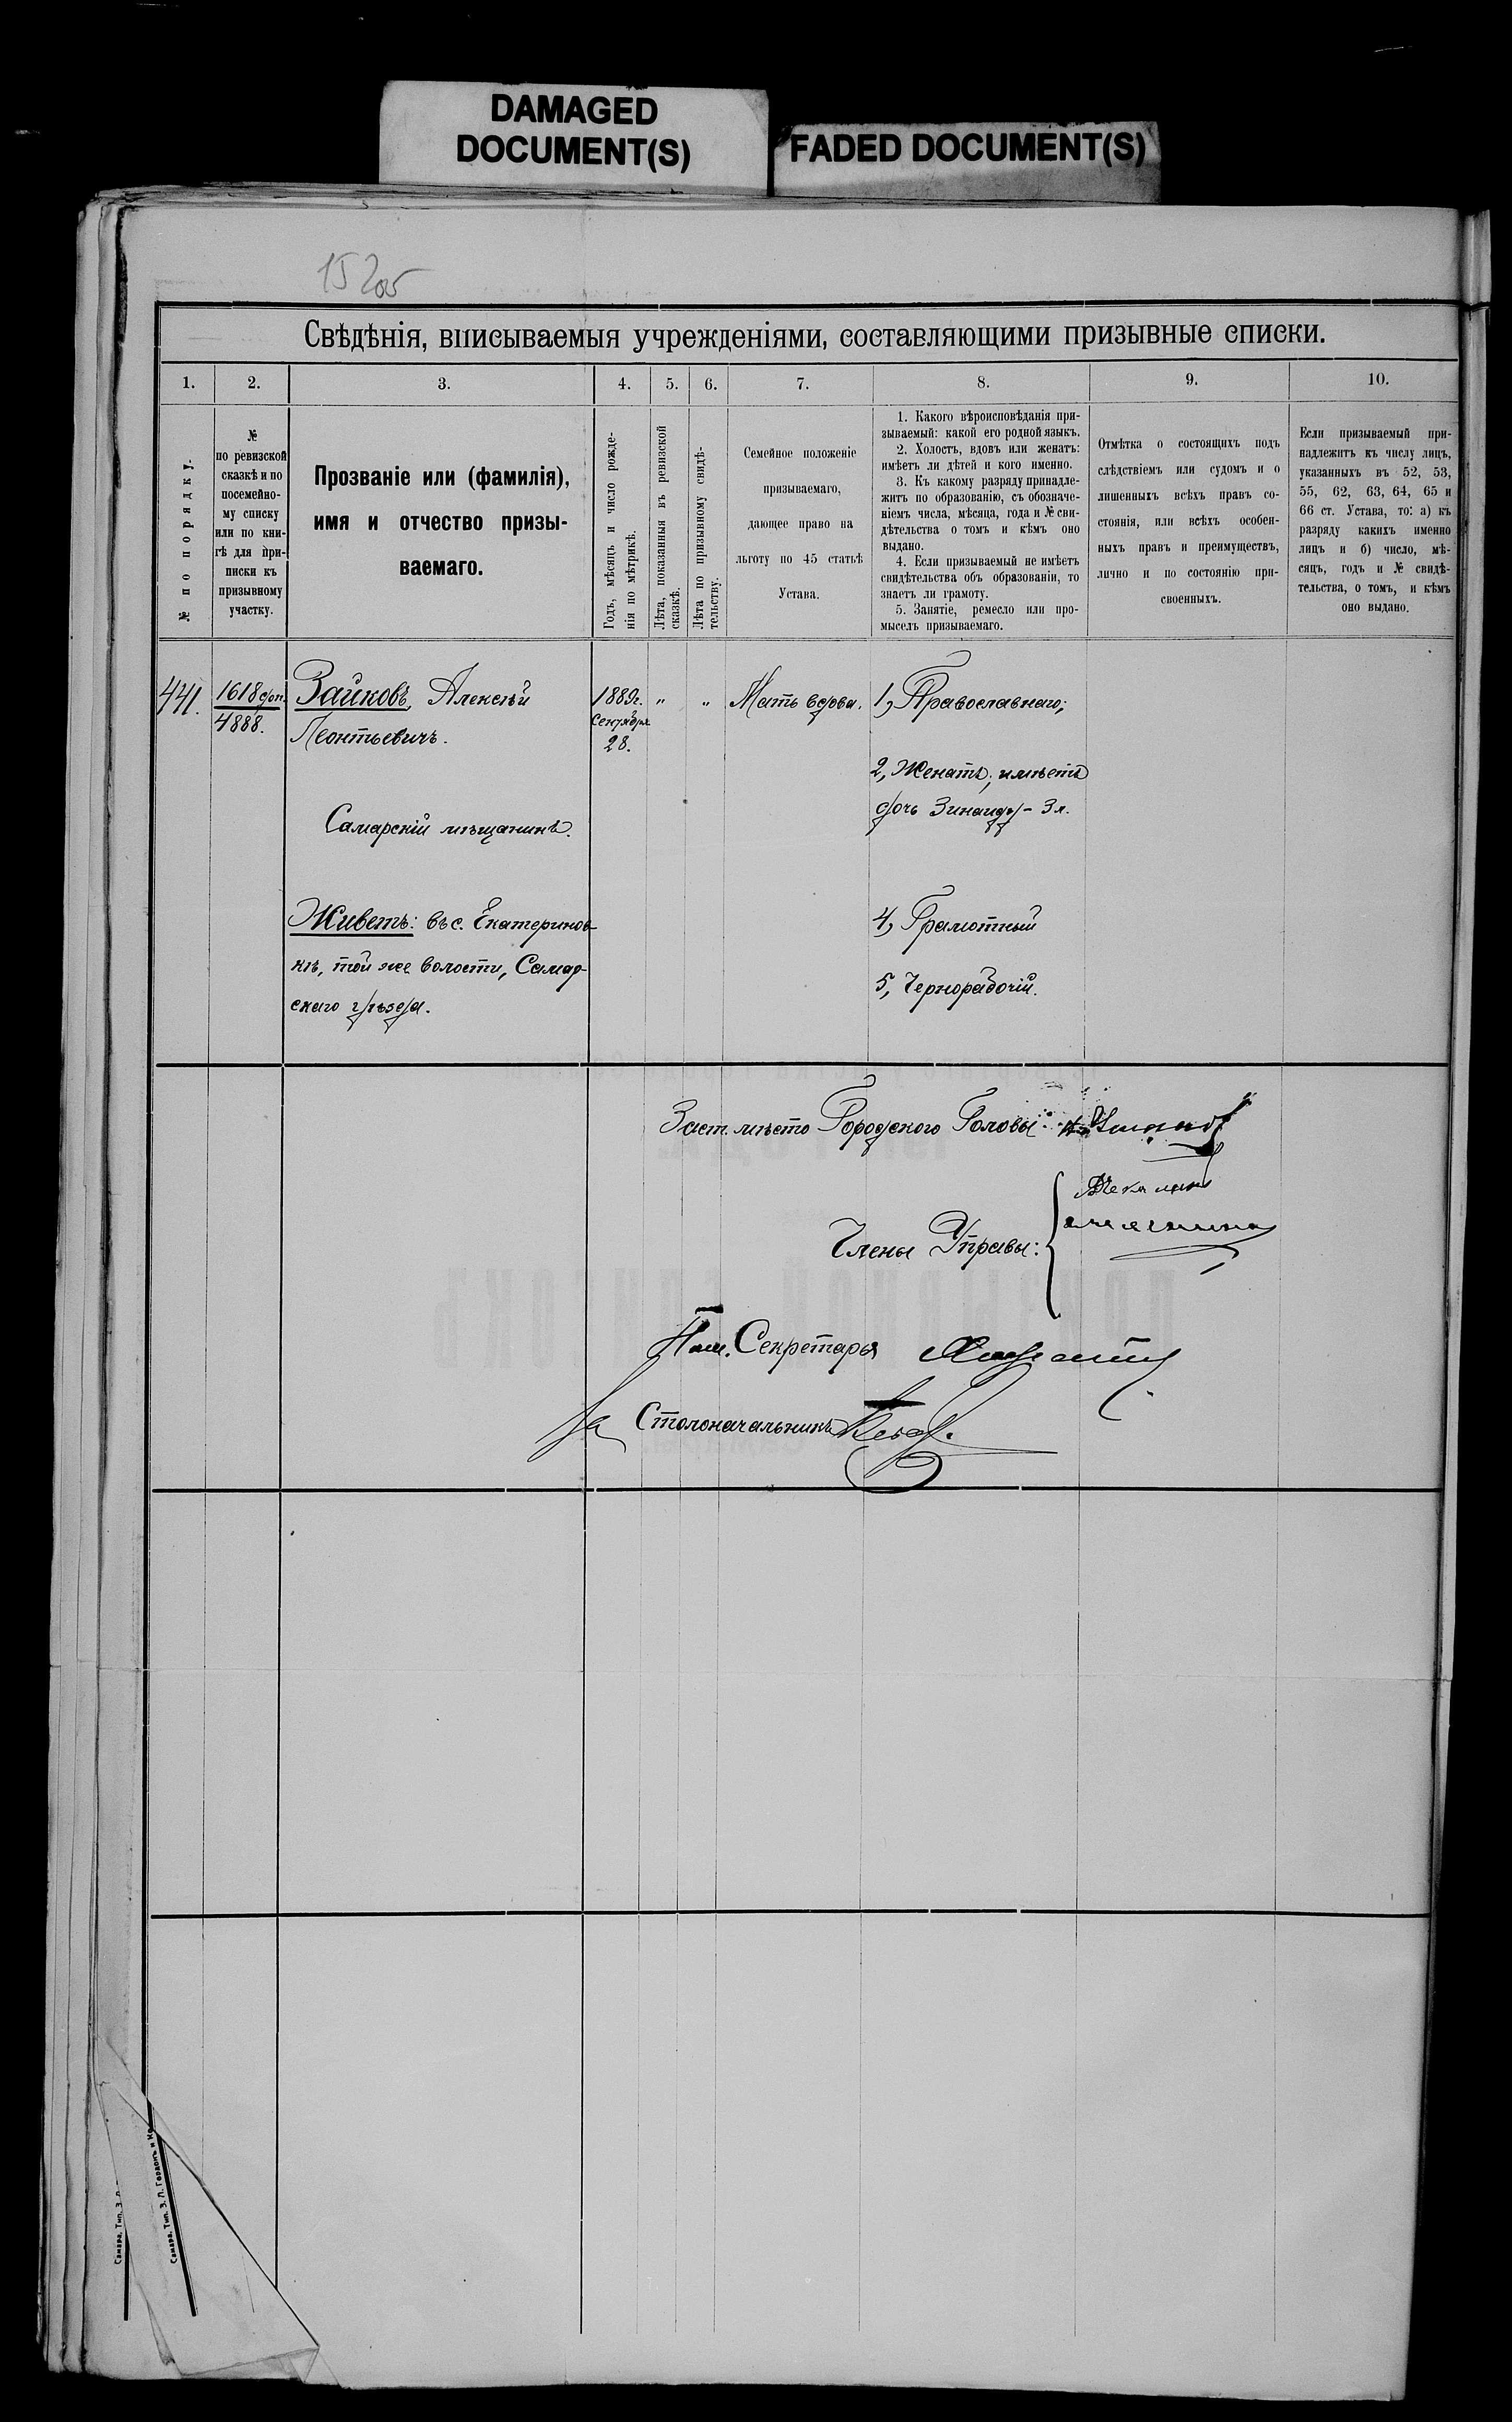 DAMAGED
DOCUMENT(S)
FADED DOCUMENT(S)
Свѣдѣнія, вписываемыя учрежденіями, составляющими призывные списки.
1.
2.
3.
4.
5.
6.
7.
8.
9.
10.
№ по порядку.
№
по ревизской
сказкѣ и по
посемейно-
му списку
или по кни-
гѣ для при-
писки къ
призывному
участку.
Прозваніе или (фамилія),
имя и отчество призы-
ваемаго.
Годъ, мѣсяцъ и число рожде-
нія по мѣтрикѣ.
Лѣта, показанныя въ ревизской
сказкѣ.
Лѣта по призывному свидѣ-
тельству.
Семейное положеніе
призываемаго,
дающее право на
льготу по 45 статьѣ
Устава.
1. Какого вѣроисповѣданія при-
зываемый: какой его родной языкъ.
2. Холостъ, вдовъ или женатъ:
имѣетъ ли дѣтей и кого именно.
3. Къ какому разряду принадле-
житъ по образованію, съ обозначе-
ніемъ числа, мѣсяца, года и № сви-
дѣтельства о томъ и кѣмъ оно
выдано.
4. Если призываемый не имѣетъ
свидѣтельства объ образованіи, то
знаетъ ли грамоту.
5. Занятіе, ремесло или про-
мыселъ призываемаго.
Отмѣтка о состоящихъ подъ
слѣдствіемъ или судомъ и о
лишенныхъ всѣхъ правъ со-
стоянія, или всѣхъ особен-
ныхъ правъ и преимуществъ,
лично и по состоянію при-
своенныхъ.
Если призываемый при-
надлежитъ къ числу лицъ,
указанныхъ въ 52, 53,
55, 62, 63, 64, 65 и
66 ст. Устава, то: а) къ
разряду какихъ именно
лицъ и б) число, мѣ-
сяцъ, годъ и № свидѣ-
тельства, о томъ, и кѣмъ
оно выдано.
441.
1618 доп.
4888.
Зайковъ, Алексѣй
Леонтьевичъ.
Самарскій мѣщанинъ.
Живетъ: въ с. Екатеринов-
кѣ, той же волости, Самар-
скаго уѣзда.
1889г.
Сентября
28.
"
"
Мать вдова.
1, Православнаго;
2, Женатъ; имѣетъ
дочь Зинаиду - 3 л.
4, Грамотный
5, Чернорабочій.
Заст. мѣсто Городского Головы:
Члены Управы:
Пом. Секретаря
За Столоначальника
Самара. Тип. З. Л.
Самара. Тип. З. Л. Гордонъ и К